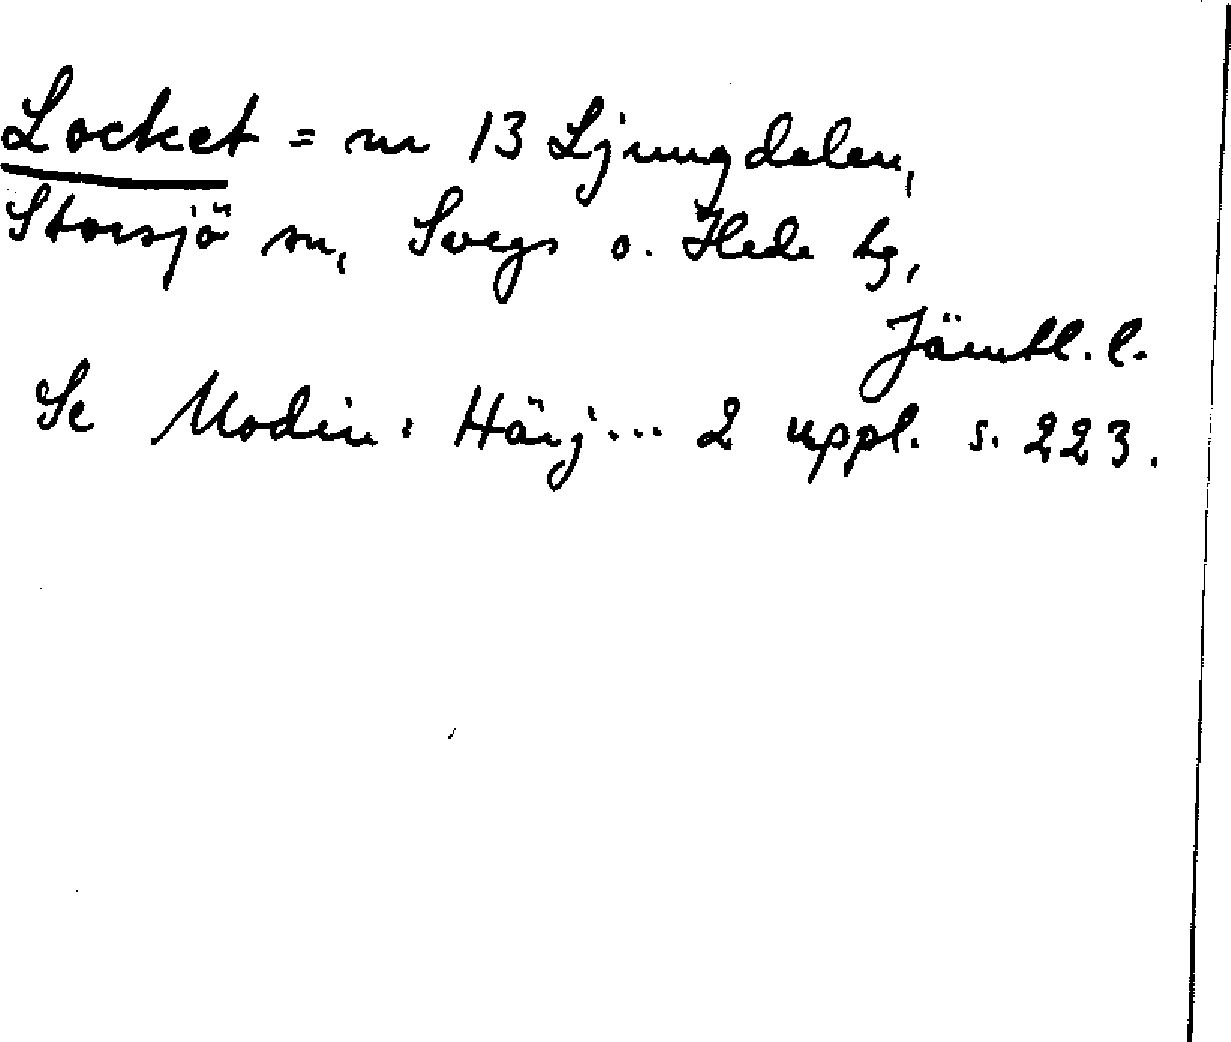 Locket = nr 13 Ljungdalen,
Storsjö sn, Svegs o. Hede tg,
Jämtl. l.
Se Modin: Härj... 2 uppl. s. 223.